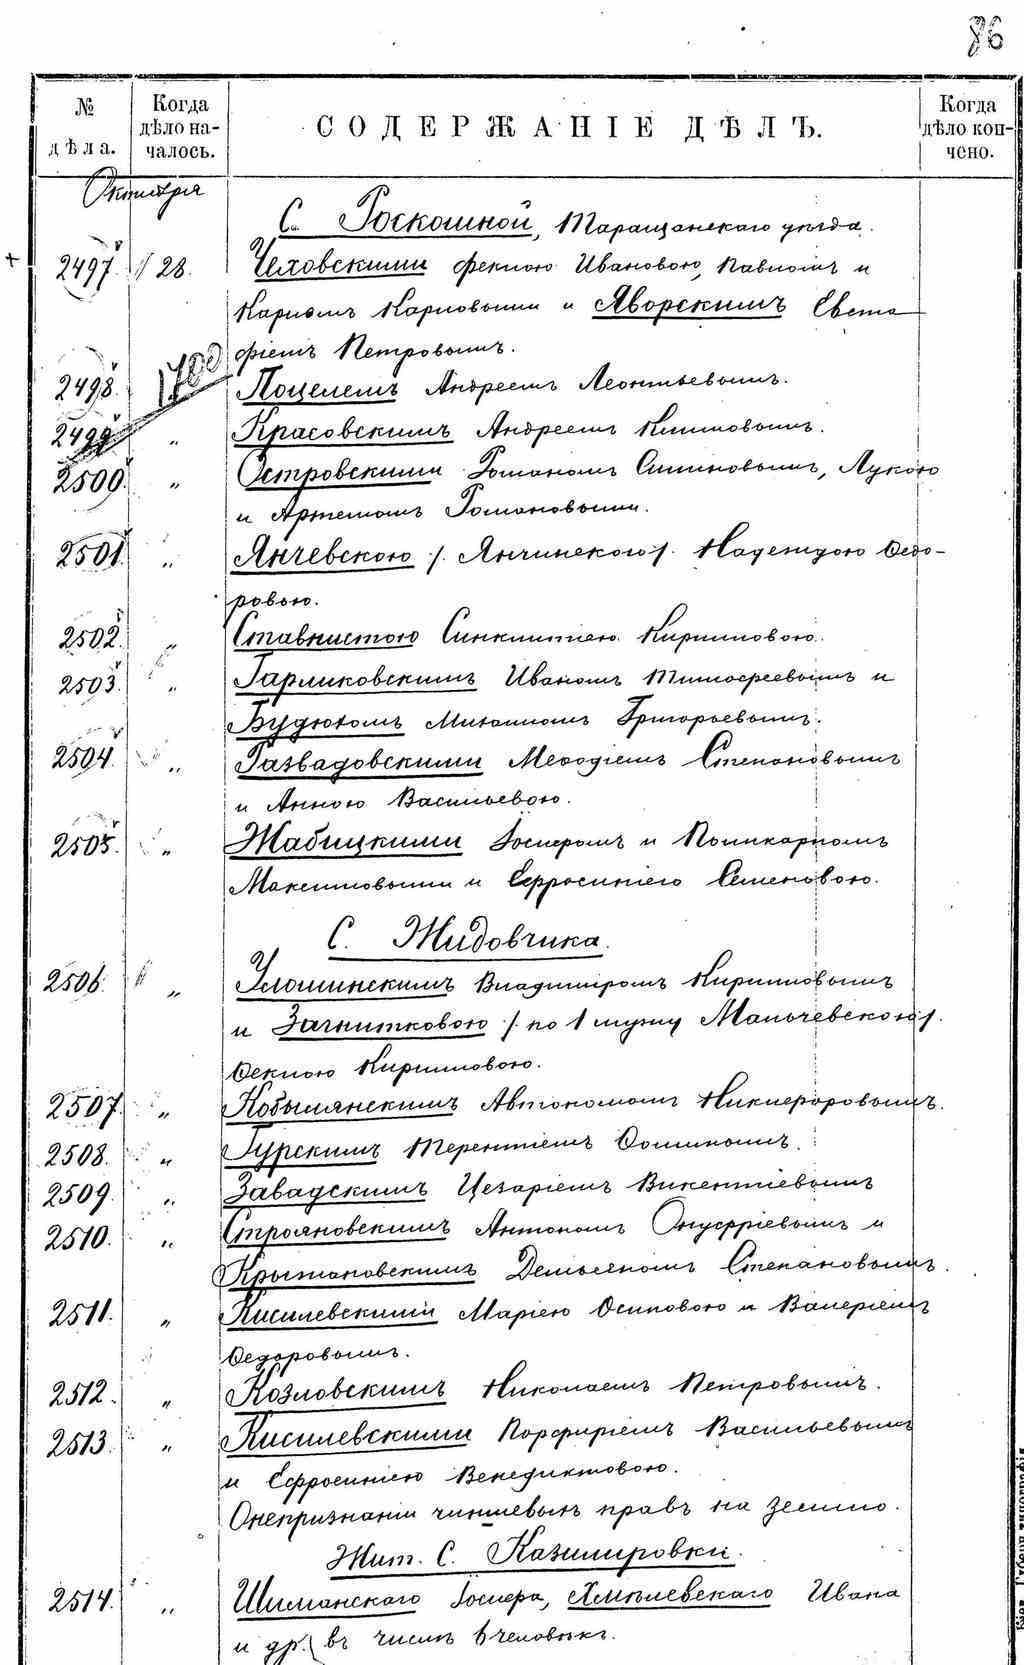 86
№ дѣла.
Когда дѣло началось.
СОДЕРЖАНІЕ ДѢЛЪ.
Когда дѣло кончено.
Октября
С. Роскошной, Таращанскаго уѣзда.
2497. 28. Чеховскими Феклою Ивановою, Павломъ и
Карпомъ Карповыми и Яворскимъ Евста
фіемъ Петровымъ.
2498. 1700 Поцелемъ Андреемъ Леонтьевымъ.
2499 " Красовскимъ Андреемъ Климовымъ.
2500. " Островскими Романомъ Симиновымъ, Лукою
и Артемомъ Романовыми.
2501. " Янчевскою /. Янчинскою/. Надеждою Ѳедо-
ровою.
2502. " Ставнистою Синклитіею Кириловою.
2503. " Гарликовскимъ Иваномъ Тимофеевымъ и
Будюкомъ Михаиломъ Григорьевымъ.
2504. " Развадовскими Меѳодіемъ Степановымъ
и Анною Васильевою.
2505. " Жабицкими Іосифомъ и Поликарпомъ
Максимовыми и Ефросиніею Семеновою.
С. Жидовчика.
2506. " Улошинскимъ Владиміромъ Кириловымъ
и Загнитковою /. по 1 мужу Мальчевскою/.
Ѳеклою Кириловою.
2507. " Кобылянскимъ Автономомъ Никифоровымъ.
2508. " Гурскимъ Терентіемъ Ѳоминомъ.
2509. " Завадскимъ Цезаріемъ Викентіевымъ
2510. " Строяновскимъ Антономъ Онуфріевымъ и
Крыжановскимъ Демьяномъ Степановымъ.
2511. " Кисилевскими Маріею Осиповою и Валеріемъ
Ѳедоровымъ.
2512. " Козловскимъ Николаемъ Петровымъ.
2513. " Кисилевскими Порфиріемъ Васильевымъ
и Ефросиніею Венедиктовою.
Онепризнаніи чиншевыхъ правъ на землю.
Жит. С. Казимировки.
2514. " Шиманскаго Іосифа, Хмѣлевскаго Ивана
и др. въ числѣ 6 человѣкъ.